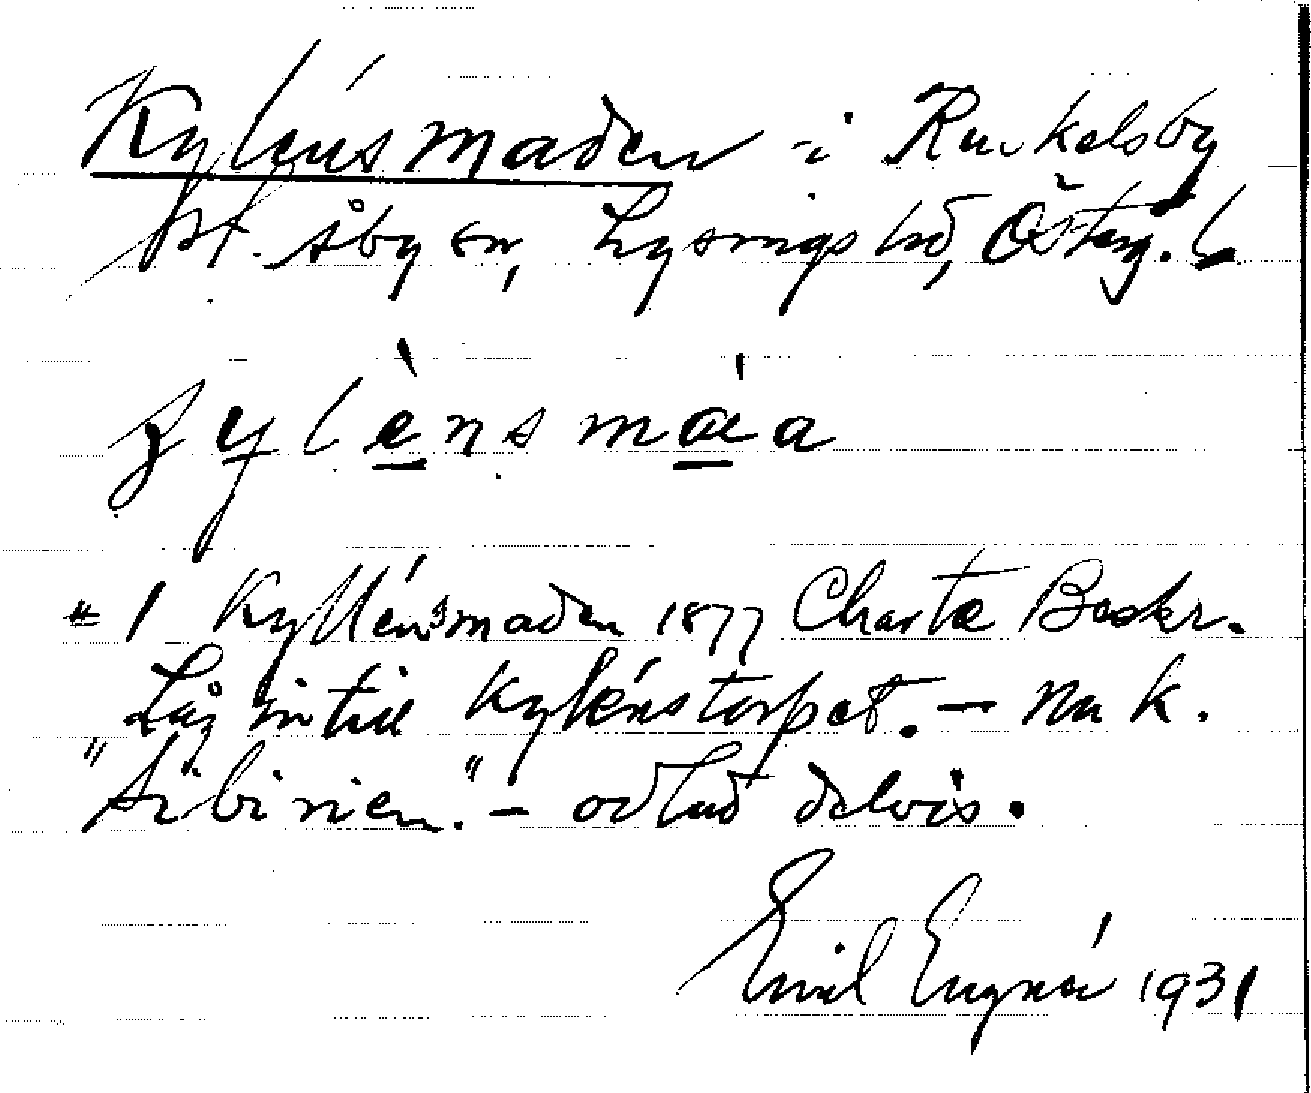 Kylénsmaden i Runkelsby
St. Åby sn, Lysings hd, Österg. l
ȷylènsmáa
# 1 Kyllénsmaden 1877 Charta Beskr.
Låg intill Kylénstorpet. – Nu k.
"Sibirien." – odlad delvis.
Emil Engnér 1931